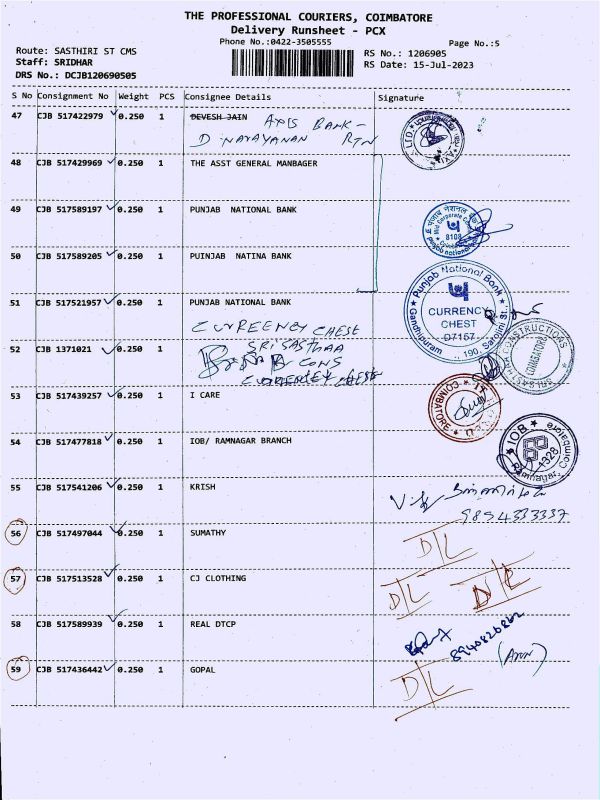 THE PROFESSIONAL COURIERS, COIMBATORE
Delivery Runsheet - PCX
Phone No.:0422-3505555
Page No.:5
Route: SASTHIRI ST CMS
Staff: SRIDHAR
DRS No.: DCJB120690505
RS No.: 1206905
RS Date: 15-Jul-2023
S No Consignment No Weight PCS Consignee Details Signature
47 CJB 517422979 0.250 1 DEVESH JAIN AXIS BANK-
D NARAYANAN RTN
48 CJB 517429969 0.250 1 THE ASST GENERAL MANBAGER
49 CJB 517589197 0.250 1 PUNJAB NATIONAL BANK
8108
50 CJB 517589205 0.250 1 PUINJAB NATINA BANK
Punjab National Bank
CURRENCY
CHEST
D7157
Gandhipuram 190, Sarojini St.
51 CJB 517521957 0.250 1 PUNJAB NATIONAL BANK
CURREENCY CHESE
52 CJB 1371021 0.250 1 SRI SASTHAA
CONS
CONSTRUCTIONS
COIMBATORE
SRI SAS
53 CJB 517439257 0.250 1 I CARE
COIMBATORE
54 CJB 517477818 0.250 1 IOB/ RAMNAGAR BRANCH
IOB
4328
Ramnagar, Coimbatore
55 CJB 517541206 0.250 1 KRISH
9894333337
56 CJB 517497044 0.250 1 SUMATHY D/L
57 CJB 517513528 0.250 1 CJ CLOTHING D/L
58 CJB 517589939 0.250 1 REAL DTCP
8940826862
(ARUN)
59 CJB 517436442 0.250 1 GOPAL D/L